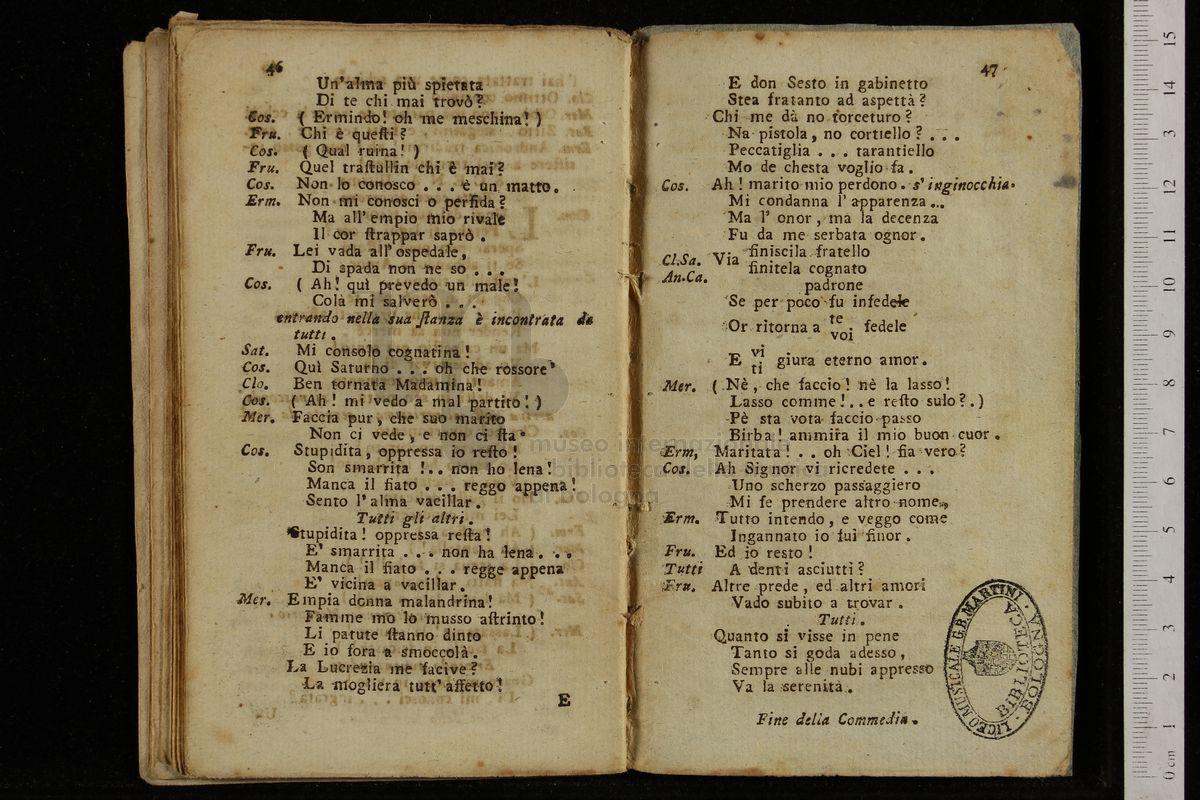 46
Un'alma più spietata
Di te chi mai trovò?
Cos. ( Ermindo! oh me meschina! )
Fru. Chi è questi?
Cos. ( Qual ruina! )
Fru. Quel trastullin chi è mai?
Cos. Non lo conosco . . . è un matto.
Erm. Non mi conosci o perfida?
Ma all' empio mio rivale
Il cor strappar saprò .
Fru. Lei vada all' ospedale,
Di spada non ne so . . .
Cos. ( Ah! quì prevedo un male!
Colà mi salverò . . .
entrando nella sua stanza è incontrata da
tutti .
Sat. Mi consolo cognatina!
Cos. Quì Saturno . . . oh che rossore
Clo. Ben tornata Madamina!
Cos. ( Ah! mi vedo a mal partito! )
Mer. Faccia pur, che suo marito
Non ci vede, e non ci sta
Cos. Stupidita, oppressa io resto!
Son smarrita !.. non ho lena!
Manca il fiato . . . reggo appena!
Sento l'alma vacillar.
Tutti gli altri .
Stupidita! oppressa resta!
E' smarrita . . . non ha lena. . .
Manca il fiato . . . regge appena
E' vicina a vacillar.
Mer. Empia donna malandrina!
Famme mo lo musso astrinto!
Li patute stanno dinto
E io fora a smoccolà.
La Lucrezia me facive?
La mogliera tutt' affetto!
E
47
E don Sesto in gabinetto
Stea fratanto ad aspettà?
Chi me dà no torceturo?
Na pistola, no cortiello? . . .
Peccatiglia . . . tarantiello
Mo de chesta voglio fa.
Cos. Ah! marito mio perdono. s' inginocchia.
Mi condanna l' apparenza...
Ma l' onor, ma la decenza
Fu da me serbata ognor.
Cl.Sa. An.Ca. Via finiscila fratello
finitela cognato
padrone
Se per poco fu infedele
Or ritorna a te voi fedele
E vi ti giura eterno amor.
Mer. ( Nè, che faccio! nè la lasso!
Lasso comme!..e resto sulo?.)
Pè sta vota faccio passo
Birba! ammira il mio buon cuor.
Erm, Maritata! . . oh Ciel! fia vero?
Cos. Ah Signor vi ricredete . . .
Uno scherzo passaggiero
Mi fe prendere altro nome.,
Erm. Tutto intendo, e veggo come
Ingannato io fui finor.
Fru. Ed io resto!
Tutti A denti asciutti?
Fru. Altre prede, ed altri amori
Vado subito a trovar .
Tutti.
Quanto si visse in pene
Tanto si goda adesso,
Sempre alle nubi appresso
Va la serenità.
Fine della Commedia.
LICEO MUSICALE G.B. MARTINI · BOLOGNA
BIBLIOTECA
museo internazionale
biblioteca della
bologna
0 cm 1 2 3 4 5 6 7 8 9 10 11 12 13 14 15